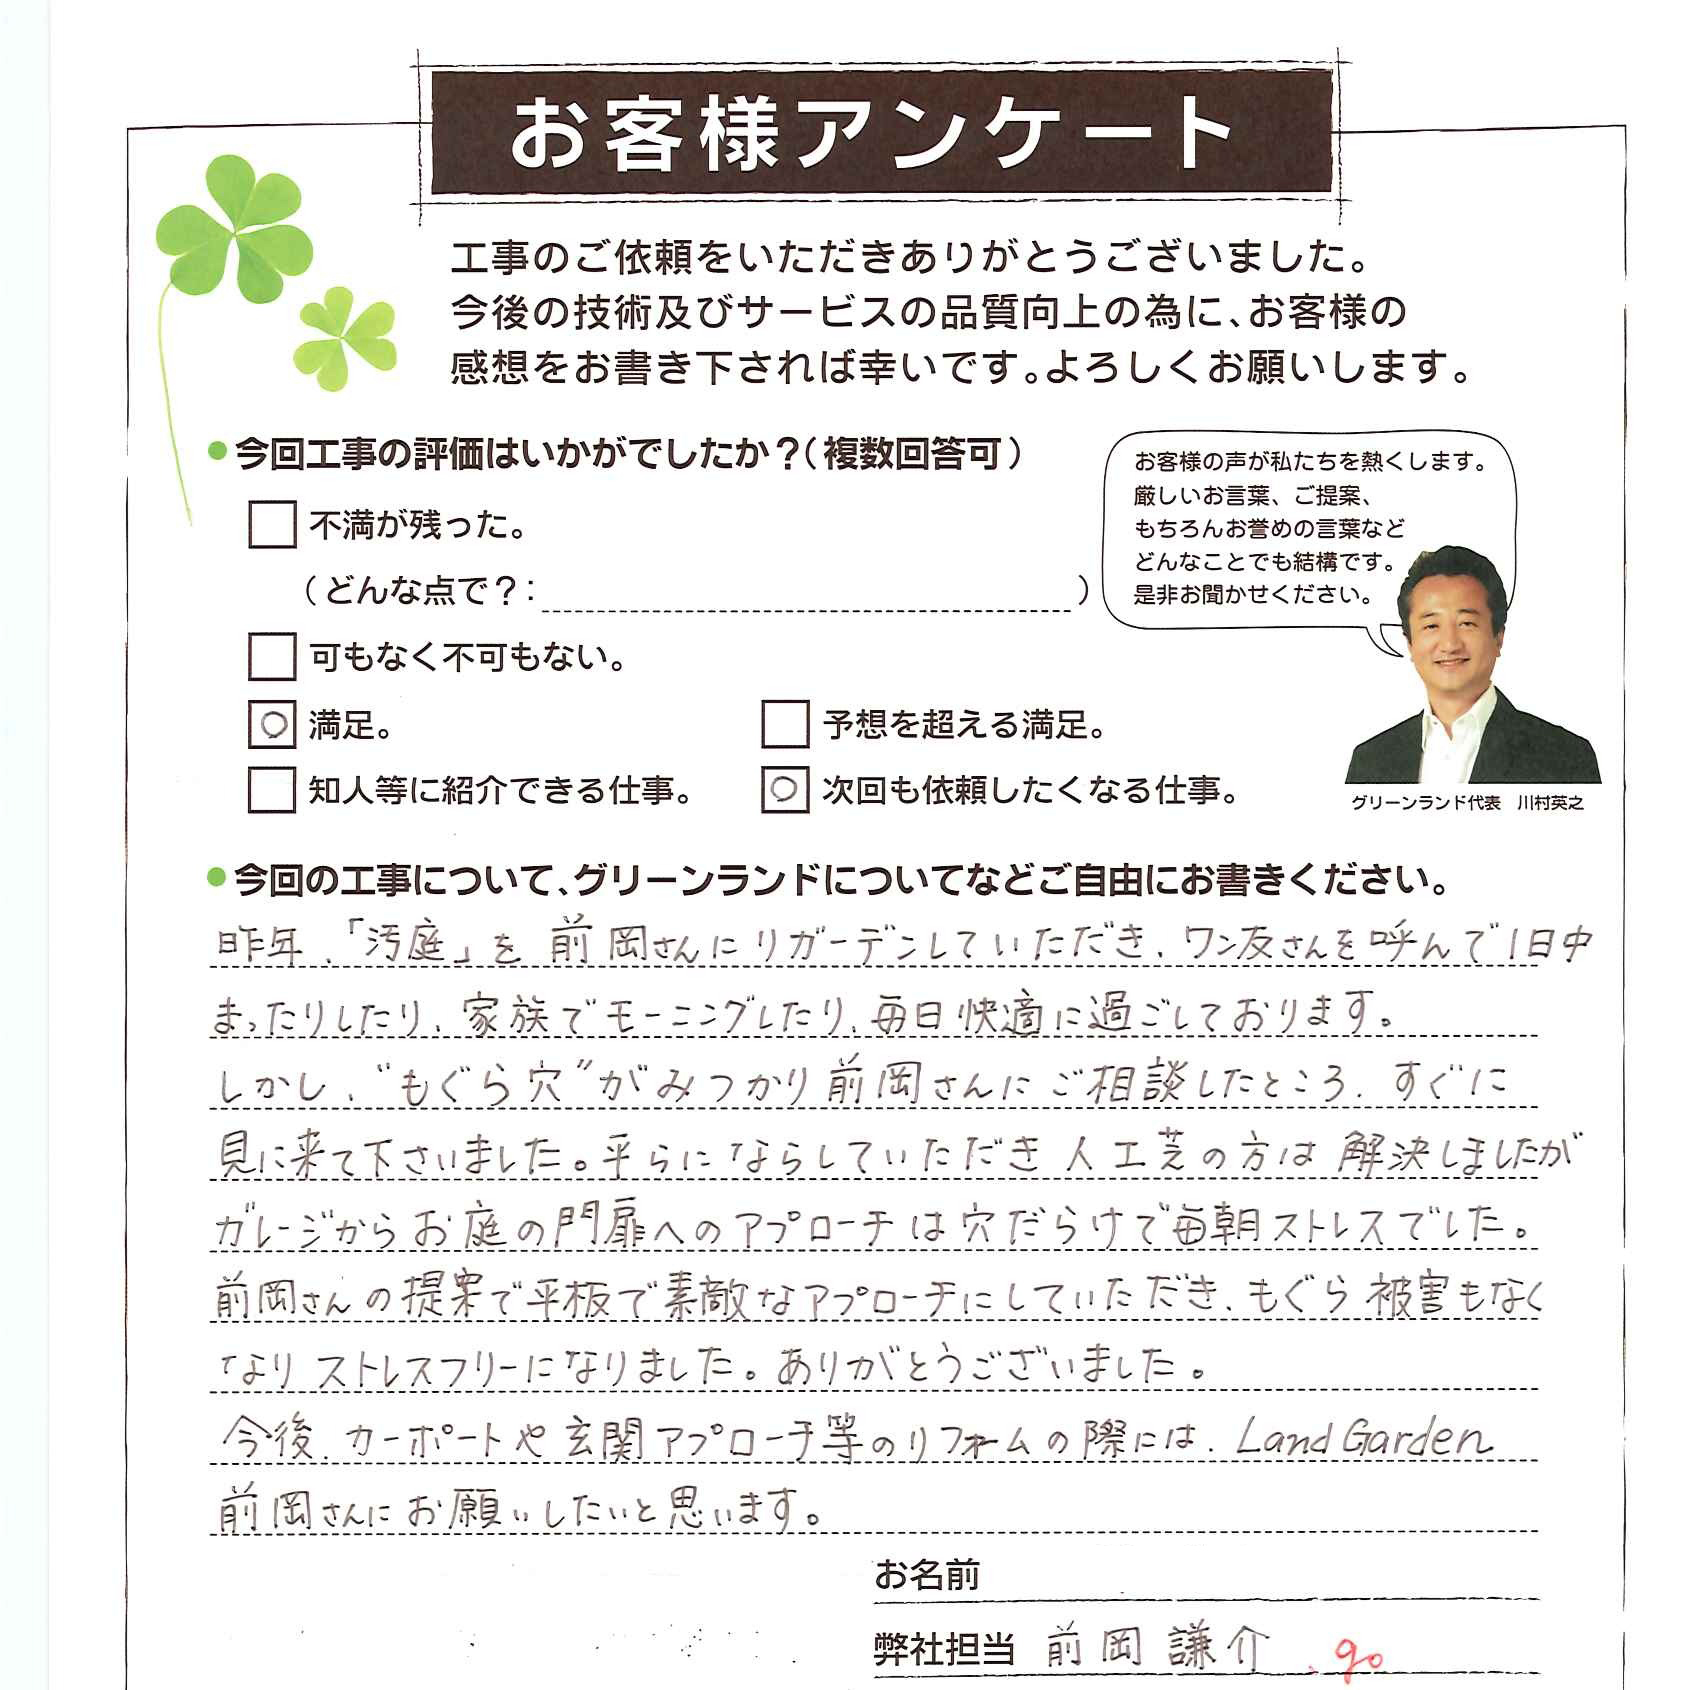 お客様アンケート
工事のご依頼をいただきありがとうございました。
今後の技術及びサービスの品質向上の為に、お客様の
感想をお書き下されば幸いです。よろしくお願いします。
今回工事の評価はいかがでしたか？（複数回答可）
お客様の声が私たちを熱くします。
厳しいお言葉、ご提案、
もちろんお誉めの言葉など
どんなことでも結構です。
是非お聞かせください。
不満が残った。
（どんな点で？： ）
可もなく不可もない。
○ 満足。
予想を超える満足。
知人等に紹介できる仕事。
○ 次回も依頼したくなる仕事。
グリーンランド代表 川村英之
今回の工事について、グリーンランドについてなどご自由にお書きください。
昨年、「汚庭」を 前岡さんにリガーデンしていただき、ワン友さんを呼んで1日中
まったりしたり、家族でモーニングしたり、毎日快適に過ごしております。
しかし、“もぐら穴”がみつかり前岡さんにご相談したところ、すぐに
見に来て下さいました。平らにならしていただき人工芝の方は解決しましたが
ガレージからお庭の門扉へのアプローチは穴だらけで毎朝ストレスでした。
前岡さんの提案で平板で素敵なアプローチにしていただき、もぐら被害もなく
なりストレスフリーになりました。ありがとうございました。
今後、カーポートや玄関アプローチ等のリフォームの際には、Land Garden
前岡さんにお願いしたいと思います。
お名前
弊社担当 前岡謙介 go